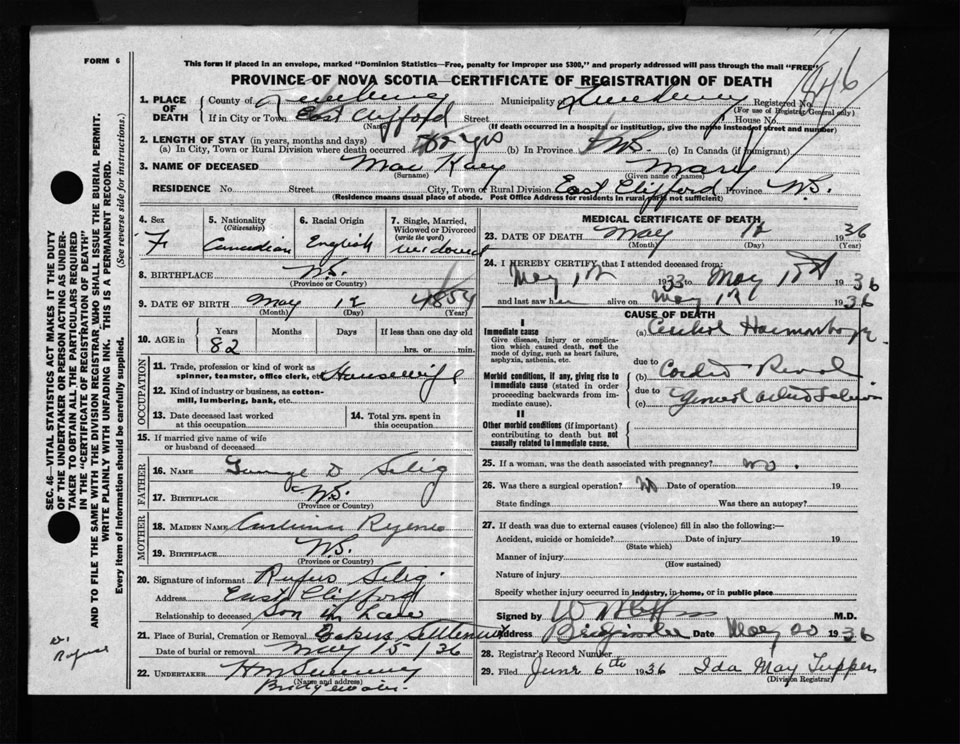 FORM 6
This form if placed in an envelope, marked "Dominion Statistics—Free, penalty for improper use $300," and properly addressed will pass through the mail "FREE"
PROVINCE OF NOVA SCOTIA—CERTIFICATE OF REGISTRATION OF DEATH
1846
1. PLACE OF DEATH
County of Lunenburg Municipality Lunenburg Registered No.
(For use of Registrar General only)
If in City or Town East Clifford Street House No.
(Name) (If death occurred in a hospital or institution, give the name instead of street and number)
2. LENGTH OF STAY (in years, months and days)
(a) In City, Town or Rural Division where death occurred yrs (b) In Province N.S. (c) In Canada (if immigrant)
3. NAME OF DECEASED Mac Kay Mary
(Surname) (Given name or names)
RESIDENCE No. Street City, Town or Rural Division East Clifford Province N.S.
(Residence means usual place of abode. Post Office Address for residents in rural parts not sufficient)
4. Sex F
5. Nationality (Citizenship) Canadian
6. Racial Origin English
7. Single, Married, Widowed or Divorced (write the word) widowed
8. BIRTHPLACE N.S.
(Province or Country)
9. DATE OF BIRTH May 12 1854
(Month) (Day) (Year)
10. AGE in Years Months Days If less than one day old
82 hrs. or min.
OCCUPATION
11. Trade, profession or kind of work as spinner, teamster, office clerk, etc. Housewife
12. Kind of industry or business, as cotton-mill, lumbering, bank, etc.
13. Date deceased last worked at this occupation
14. Total yrs. spent in this occupation
15. If married give name of wife or husband of deceased
FATHER
16. NAME D Selig
17. BIRTHPLACE N.S.
(Province or Country)
MOTHER
18. MAIDEN NAME
19. BIRTHPLACE N.S.
(Province or Country)
20. Signature of informant Rufus Selig
Address East Clifford
Relationship to deceased Son in Law
21. Place of Burial, Cremation or Removal
Date of burial or removal May 15/36
22. UNDERTAKER
(Name and address)
Bridgewater
MEDICAL CERTIFICATE OF DEATH
23. DATE OF DEATH May 12 1936
(Month) (Day) (Year)
24. I HEREBY CERTIFY that I attended deceased from:
May 1933 to May 1936
and last saw her alive on May 1936
CAUSE OF DEATH
I
Immediate cause
Give disease, injury or complication which caused death, not the mode of dying, such as heart failure, asphyxia, asthenia, etc.
(a)
due to
Morbid conditions, if any, giving rise to immediate cause (stated in order proceeding backwards from immediate cause).
(b) Cardio Renal
due to
(c)
II
Other morbid conditions (if important) contributing to death but not causally related to immediate cause.
25. If a woman, was the death associated with pregnancy? no.
26. Was there a surgical operation? No Date of operation 19
State findings Was there an autopsy?
27. If death was due to external causes (violence) fill in also the following:—
Accident, suicide or homicide? Date of injury 19
(State which)
Manner of injury
(How sustained)
Nature of injury
Specify whether injury occurred in industry, in home, or in public place
Signed by M.D.
Address Bridgewater Date May 20 1936
28. Registrar's Record Number
29. Filed June 6th 1936 Ida May Tupper
(Division Registrar)
SEC. 46—VITAL STATISTICS ACT MAKES IT THE DUTY
OF THE UNDERTAKER OR PERSON ACTING AS UNDER-
TAKER TO OBTAIN ALL THE PARTICULARS REQUIRED
IN THE "CERTIFICATE OF REGISTRATION OF DEATH"
AND TO FILE THE SAME WITH THE DIVISION REGISTRAR WHO SHALL ISSUE THE BURIAL PERMIT.
WRITE PLAINLY WITH UNFADING INK. THIS IS A PERMANENT RECORD.
Every item of Information should be carefully supplied. (See reverse side for instructions.)